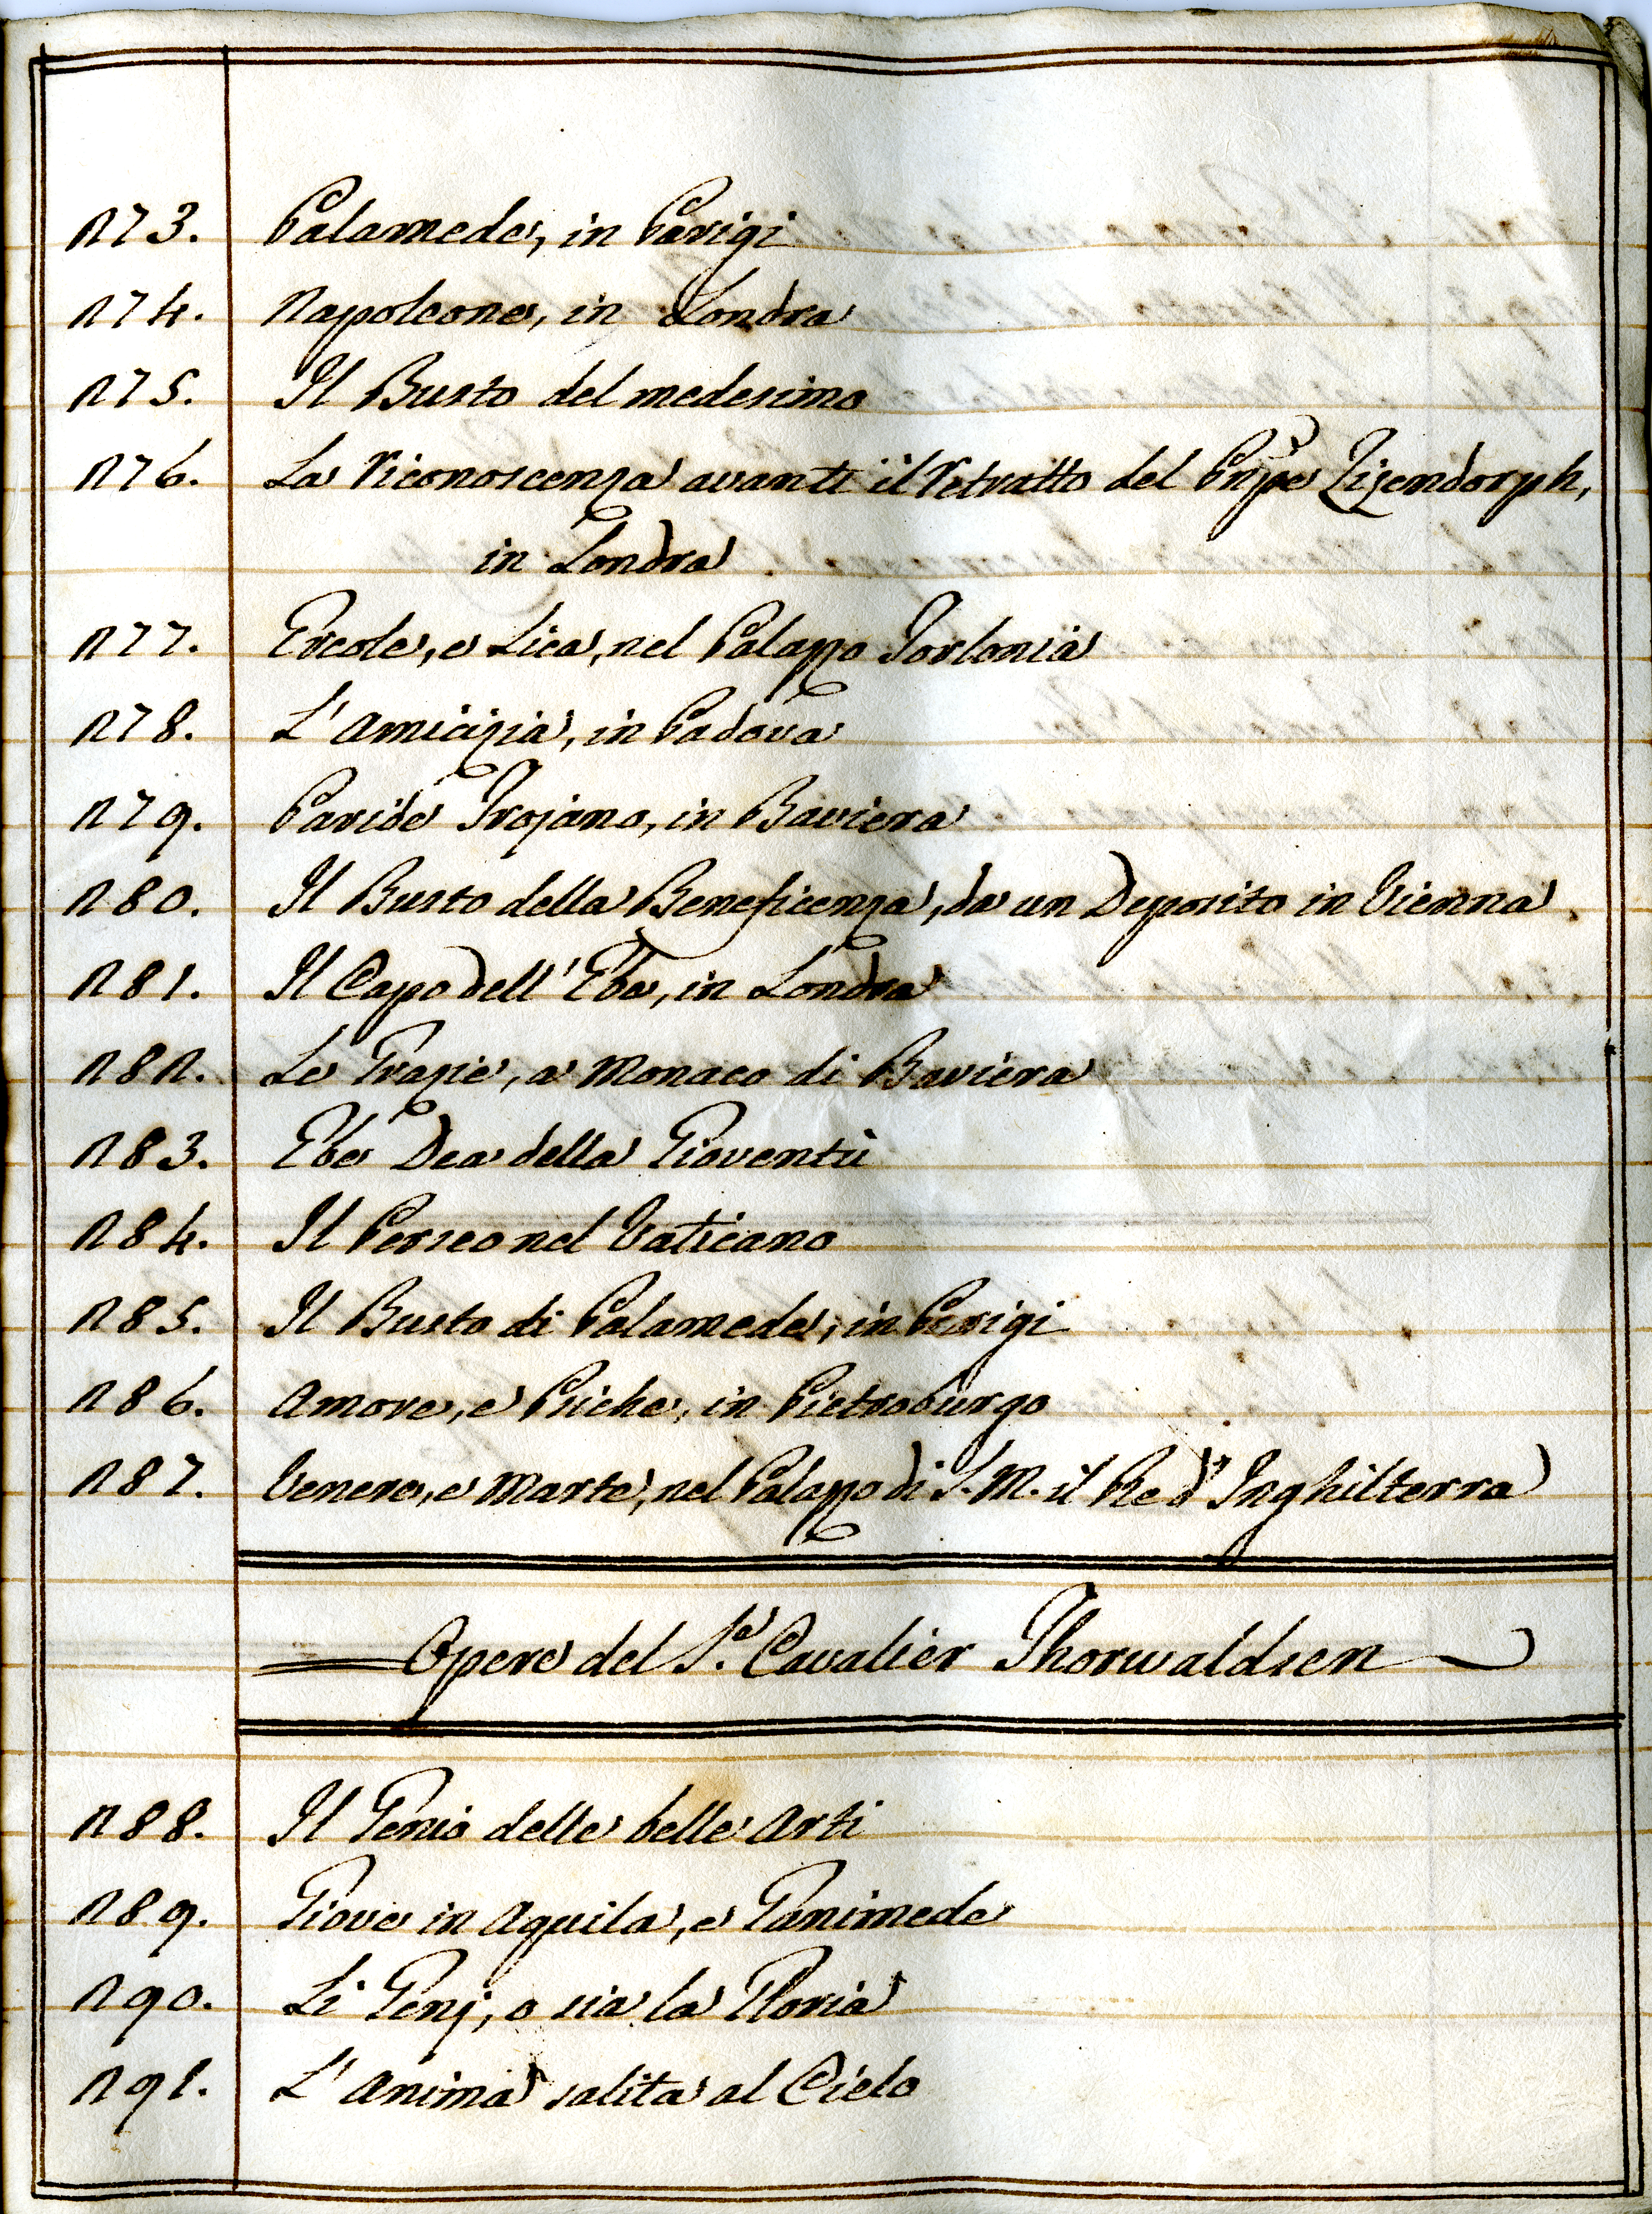 273. Palamede, in Parigi
274. Napoleone, in Londra
275. Il Busto del medesimo
276. La Riconoscenza avanti il Retratto del Pnpe Zizendorph,
in Londra.
277. Ercole, e Lica, nel Palazzo Torlonia
278. L'Amicizia, in Padova
279. Paride Trojano, in Baviera
280. Il Busto della Beneficenza, da un Deposito in Vienna.
281. Il Capo dell'Ebe, in Londra
282. Le Grazie, a Monaco di Baviera
283. Ebe Dea della Gioventù
284. Il Perseo nel Vaticano
285. Il Busto di Palamede, in Parigi
286. Amore, e Psiche, in Pietroburgo
287. Venere, e Marte, nel Palazzo di S. M. il Re d'Inghilterra
Opere del S.r Cavalier Thorwaldsen
288. Il Genio delle belle Arti
289. Giove in Aquila, e Ganimede
290. Li Genj, o sia la Gloria
291. L'Anima salita al Cielo